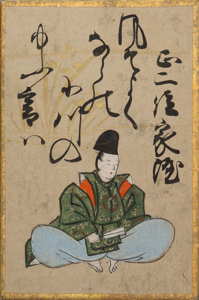 正三位家隆
風そよく
ならの
小川の
ゆふ暮は